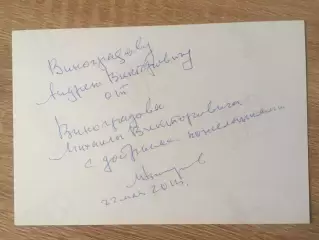 Виноградову
Андрею Викторовичу
от
Виноградова
Михаила Викторовича
с добрыми пожеланиями
22 мая 2011г.